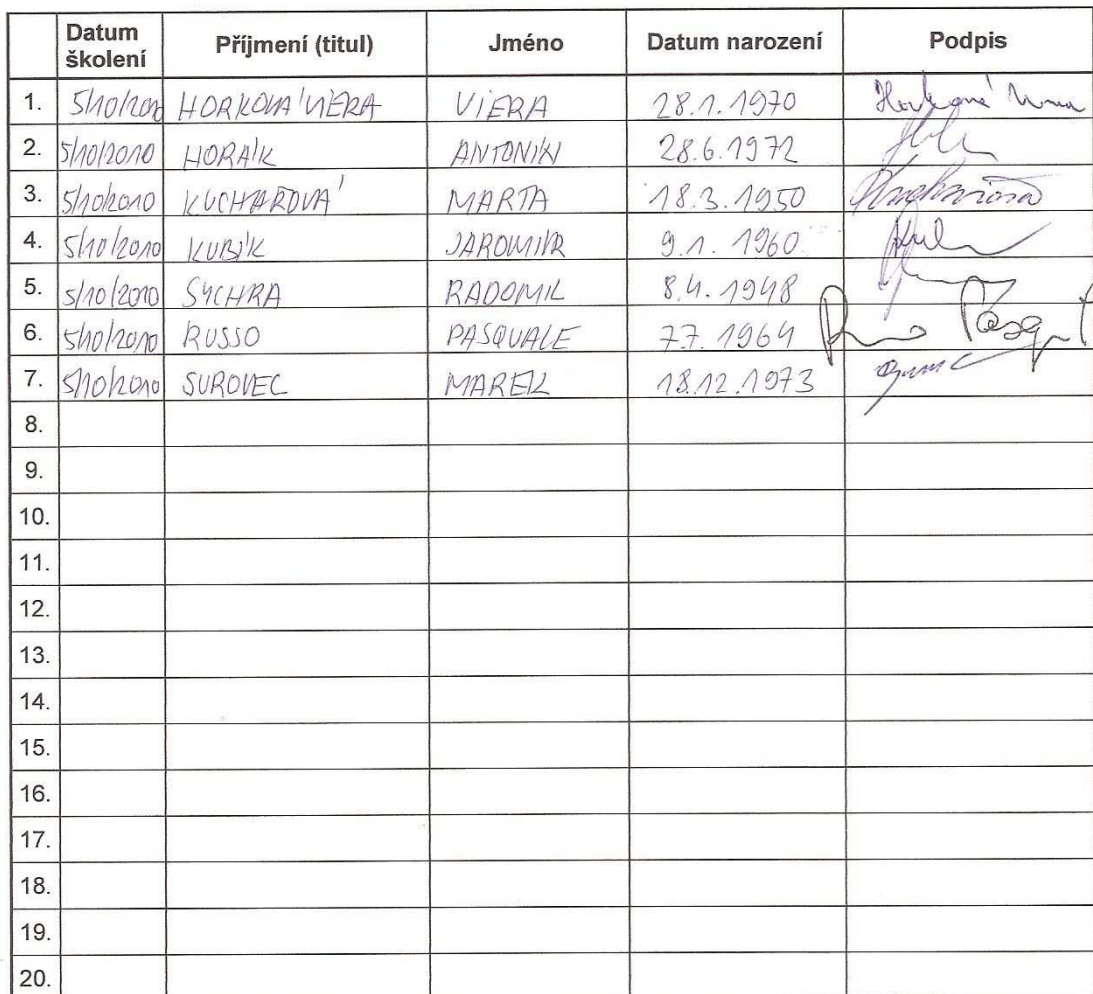 Datum školení Příjmení (titul) Jméno Datum narození Podpis
1. 5/10/2010 HORKOVÁ VIERA VIERA 28.1.1970 Horková
2. 5/10/2010 HORÁIK ANTONIN 28.6.1972
3. 5/10/2010 KUCHAROVÁ MARTA 18.3.1950
4. 5/10/2010 KUBÍK JAROMIR 9.1.1960
5. 5/10/2010 SYCHRA RADOMIL 8.4.1948
6. 5/10/2010 RUSSO PASQUALE 7.7.1964
7. 5/10/2010 SUROVEC MAREK 18.12.1973
8.
9.
10.
11.
12.
13.
14.
15.
16.
17.
18.
19.
20.